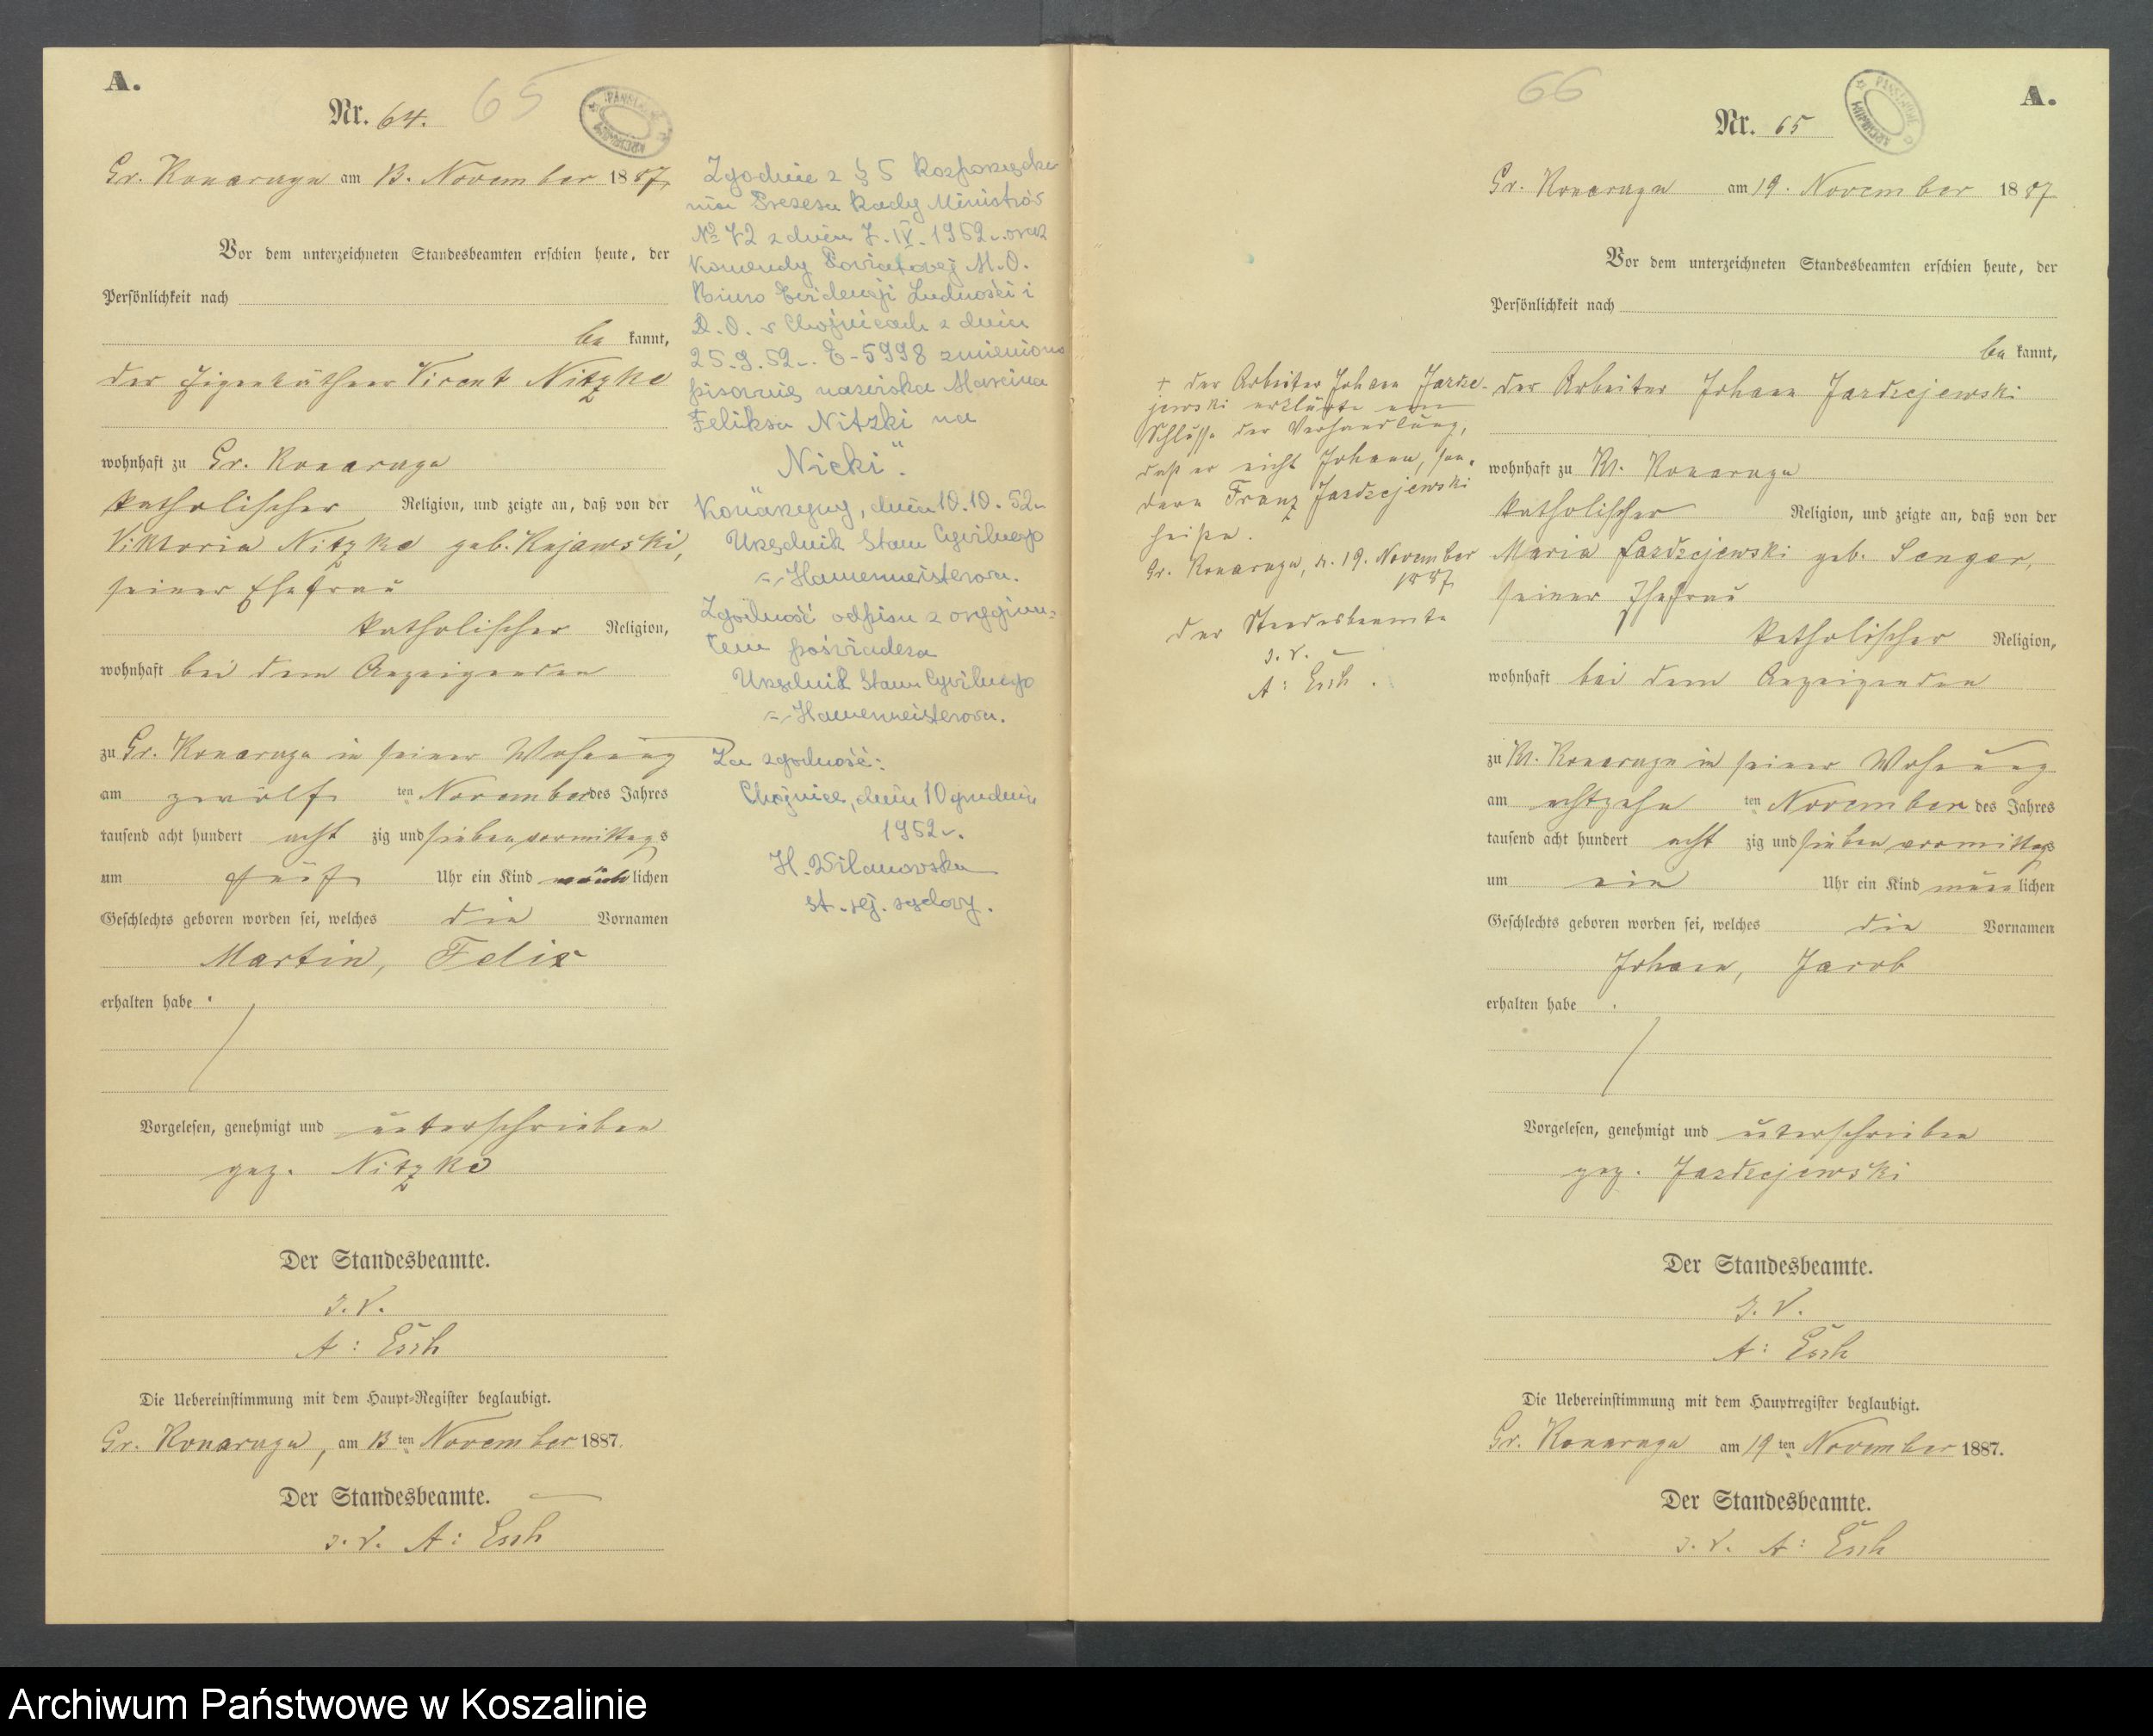 A.
65
Nr. 64.
Gr. Konarczyn am 13. November 1887
Vor dem unterzeichneten Standesbeamten erschien heute, der
Persönlichkeit nach
be kannt,
der Eigenkäthner Vincent Nitzke
wohnhaft zu Gr. Konarczyn
katholischer Religion, und zeigte an, daß von der
Viktoria Nitzke geb. Kujawski,
seiner Ehefrau
katholischer Religion,
wohnhaft bei dem Anzeigenden
zu Gr. Konarczyn in seiner Wohnung
am zwölf ten November des Jahres
tausend acht hundert acht zig und sieben vormittags
um fünf Uhr ein Kind männlichen
Geschlechts geboren worden sei, welches die Vornamen
Martin, Felix
erhalten habe.
Vorgelesen, genehmigt und unterschrieben
gez. Nitzke
Der Standesbeamte.
J. V.
A: Esch
Die Uebereinstimmung mit dem Haupt-Register beglaubigt.
Gr. Konarczyn, am 13 ten November 1887.
Der Standesbeamte.
J. V. A: Esch
Zgodnie z § 5 Rozporządze
nia Prezesa Rady Ministrów
No 72 z dnia 7.IV.1952r. oraz
Komendy Powiatowej M.O.
Biuro Ewidencji Ludności i
D.O. w Chojnicach z dnia
25.9.52r. E-5998 zmieniono
pisownię nazwiska Marcina
Feliksa Nitzki na
"Nicki".
Konarzyny, dnia 10.10.52r
Urzędnik Stanu Cywilnego
Zgodność odpisu z orygina-
łem poświadcza
Urzędnik Stanu Cywilnego
Za zgodność:
Chojnice, dnia 10 grudnia
1952r.
H. Wilanowska
st. rej. sądowy.
66
A.
Nr. 65
Gr. Konarczyn am 19. November 1887
Vor dem unterzeichneten Standesbeamten erschien heute, der
Persönlichkeit nach
be kannt,
der Arbeiter Johann Jazdzejewski
wohnhaft zu Kl. Konarczyn
katholischer Religion, und zeigte an, daß von der
Maria Jazdzejewski geb. Senger,
seiner Ehefrau
katholischer Religion,
wohnhaft bei dem Anzeigenden
zu Kl. Konarczyn in seiner Wohnung
am achtzehn ten November des Jahres
tausend acht hundert acht zig und sieben vormittags
um ein Uhr ein Kind männlichen
Geschlechts geboren worden sei, welches die Vornamen
Johann, Jacob
erhalten habe.
Vorgelesen, genehmigt und unterschrieben
gez. Jazdzejewski
Der Standesbeamte.
J. V.
A: Esch
Die Uebereinstimmung mit dem Hauptregister beglaubigt.
Gr. Konarczyn am 19 ten November 1887.
Der Standesbeamte.
J. V. A: Esch
+ der Arbeiter Johann Jazdze-
jewski erklärte am
Schlusse der Verhandlung,
daß er nicht Johann, son-
dern Franz Jazdzejewski
heiße.
Gr. Konarczyn, d. 19. November
1887
Der Standesbeamte
J. V.
A: Esch.
Archiwum Państwowe w Koszalinie